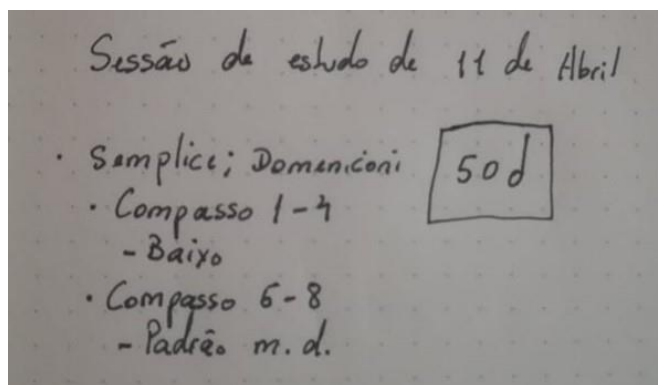 Sessão de estudo de 11 de Abril
· Semplice; Domeniconi
50d
· Compasso 1-4
- Baixo
· Compasso 6-8
- Padrão m.d.